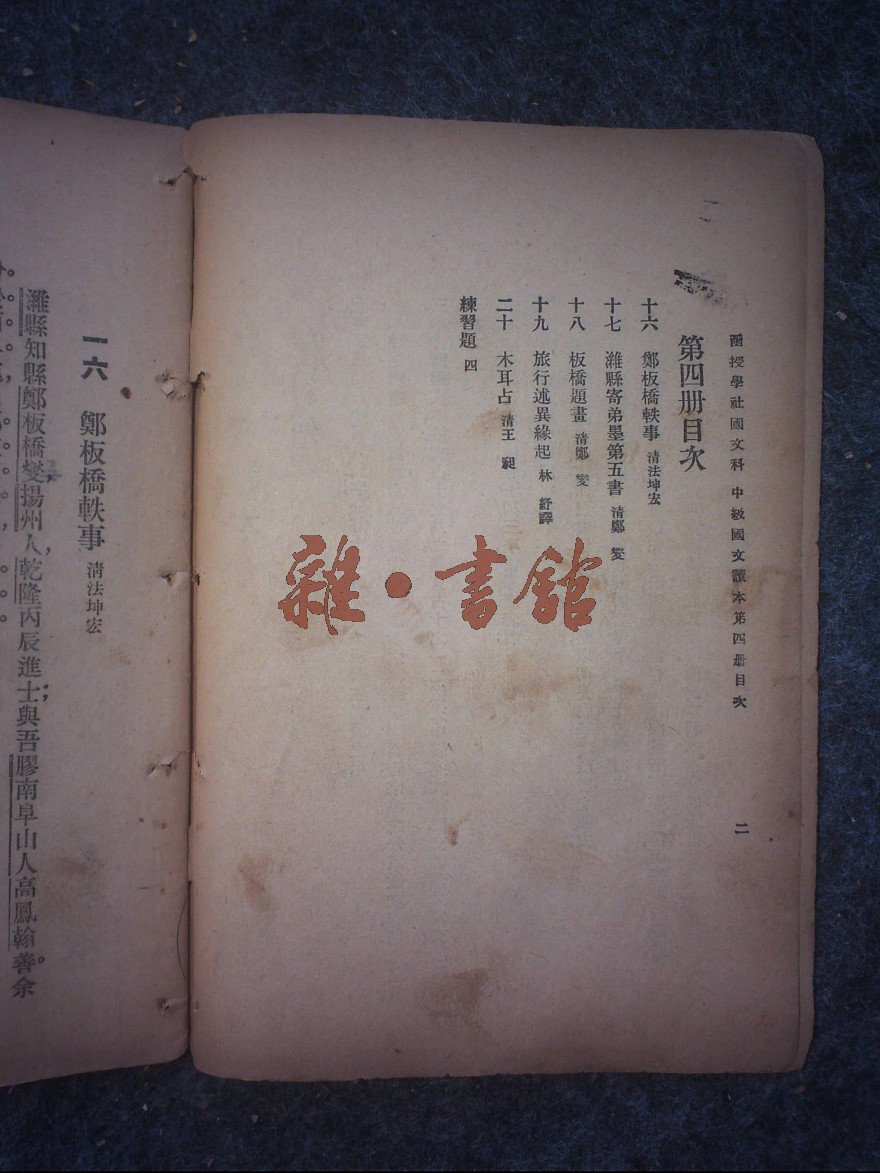 函授學社國文科 中級國文讀本第四册目次 二
第四册目次
十六 鄭板橋軼事 清法坤宏
十七 濰縣寄弟墨第五書 清鄭燮
十八 板橋題畫 清鄭燮
十九 旅行述異緣起 林紓譯
二十 木耳占 清王昶
練習題 四
雜·書館
一六 鄭板橋軼事 清法坤宏
濰縣知縣鄭板橋燮,揚州人,乾隆丙辰進士;與吾膠南阜山人高鳳翰善。余